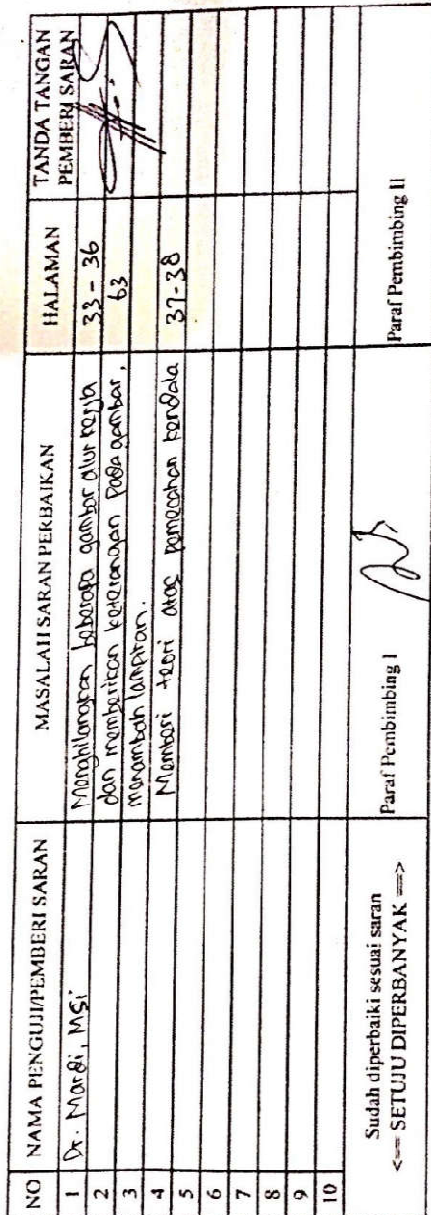 NO NAMA PENGUJI/PEMBERI SARAN MASALAH SARAN PERBAIKAN HALAMAN TANDA TANGAN
PEMBERI SARAN
1 Dr. Mardi, MSi Menghilangkan beberapa gambar alur kerja 33 - 36
2 dan memberikan keterangan pada gambar, 63
3 menambah lampiran.
4 Memberi teori atas pemecahan kendala 37-38
5
6
7
8
9
10
Sudah diperbaiki sesuai saran
<=== SETUJU DIPERBANYAK ===>
Paraf Pembimbing I
Paraf Pembimbing II